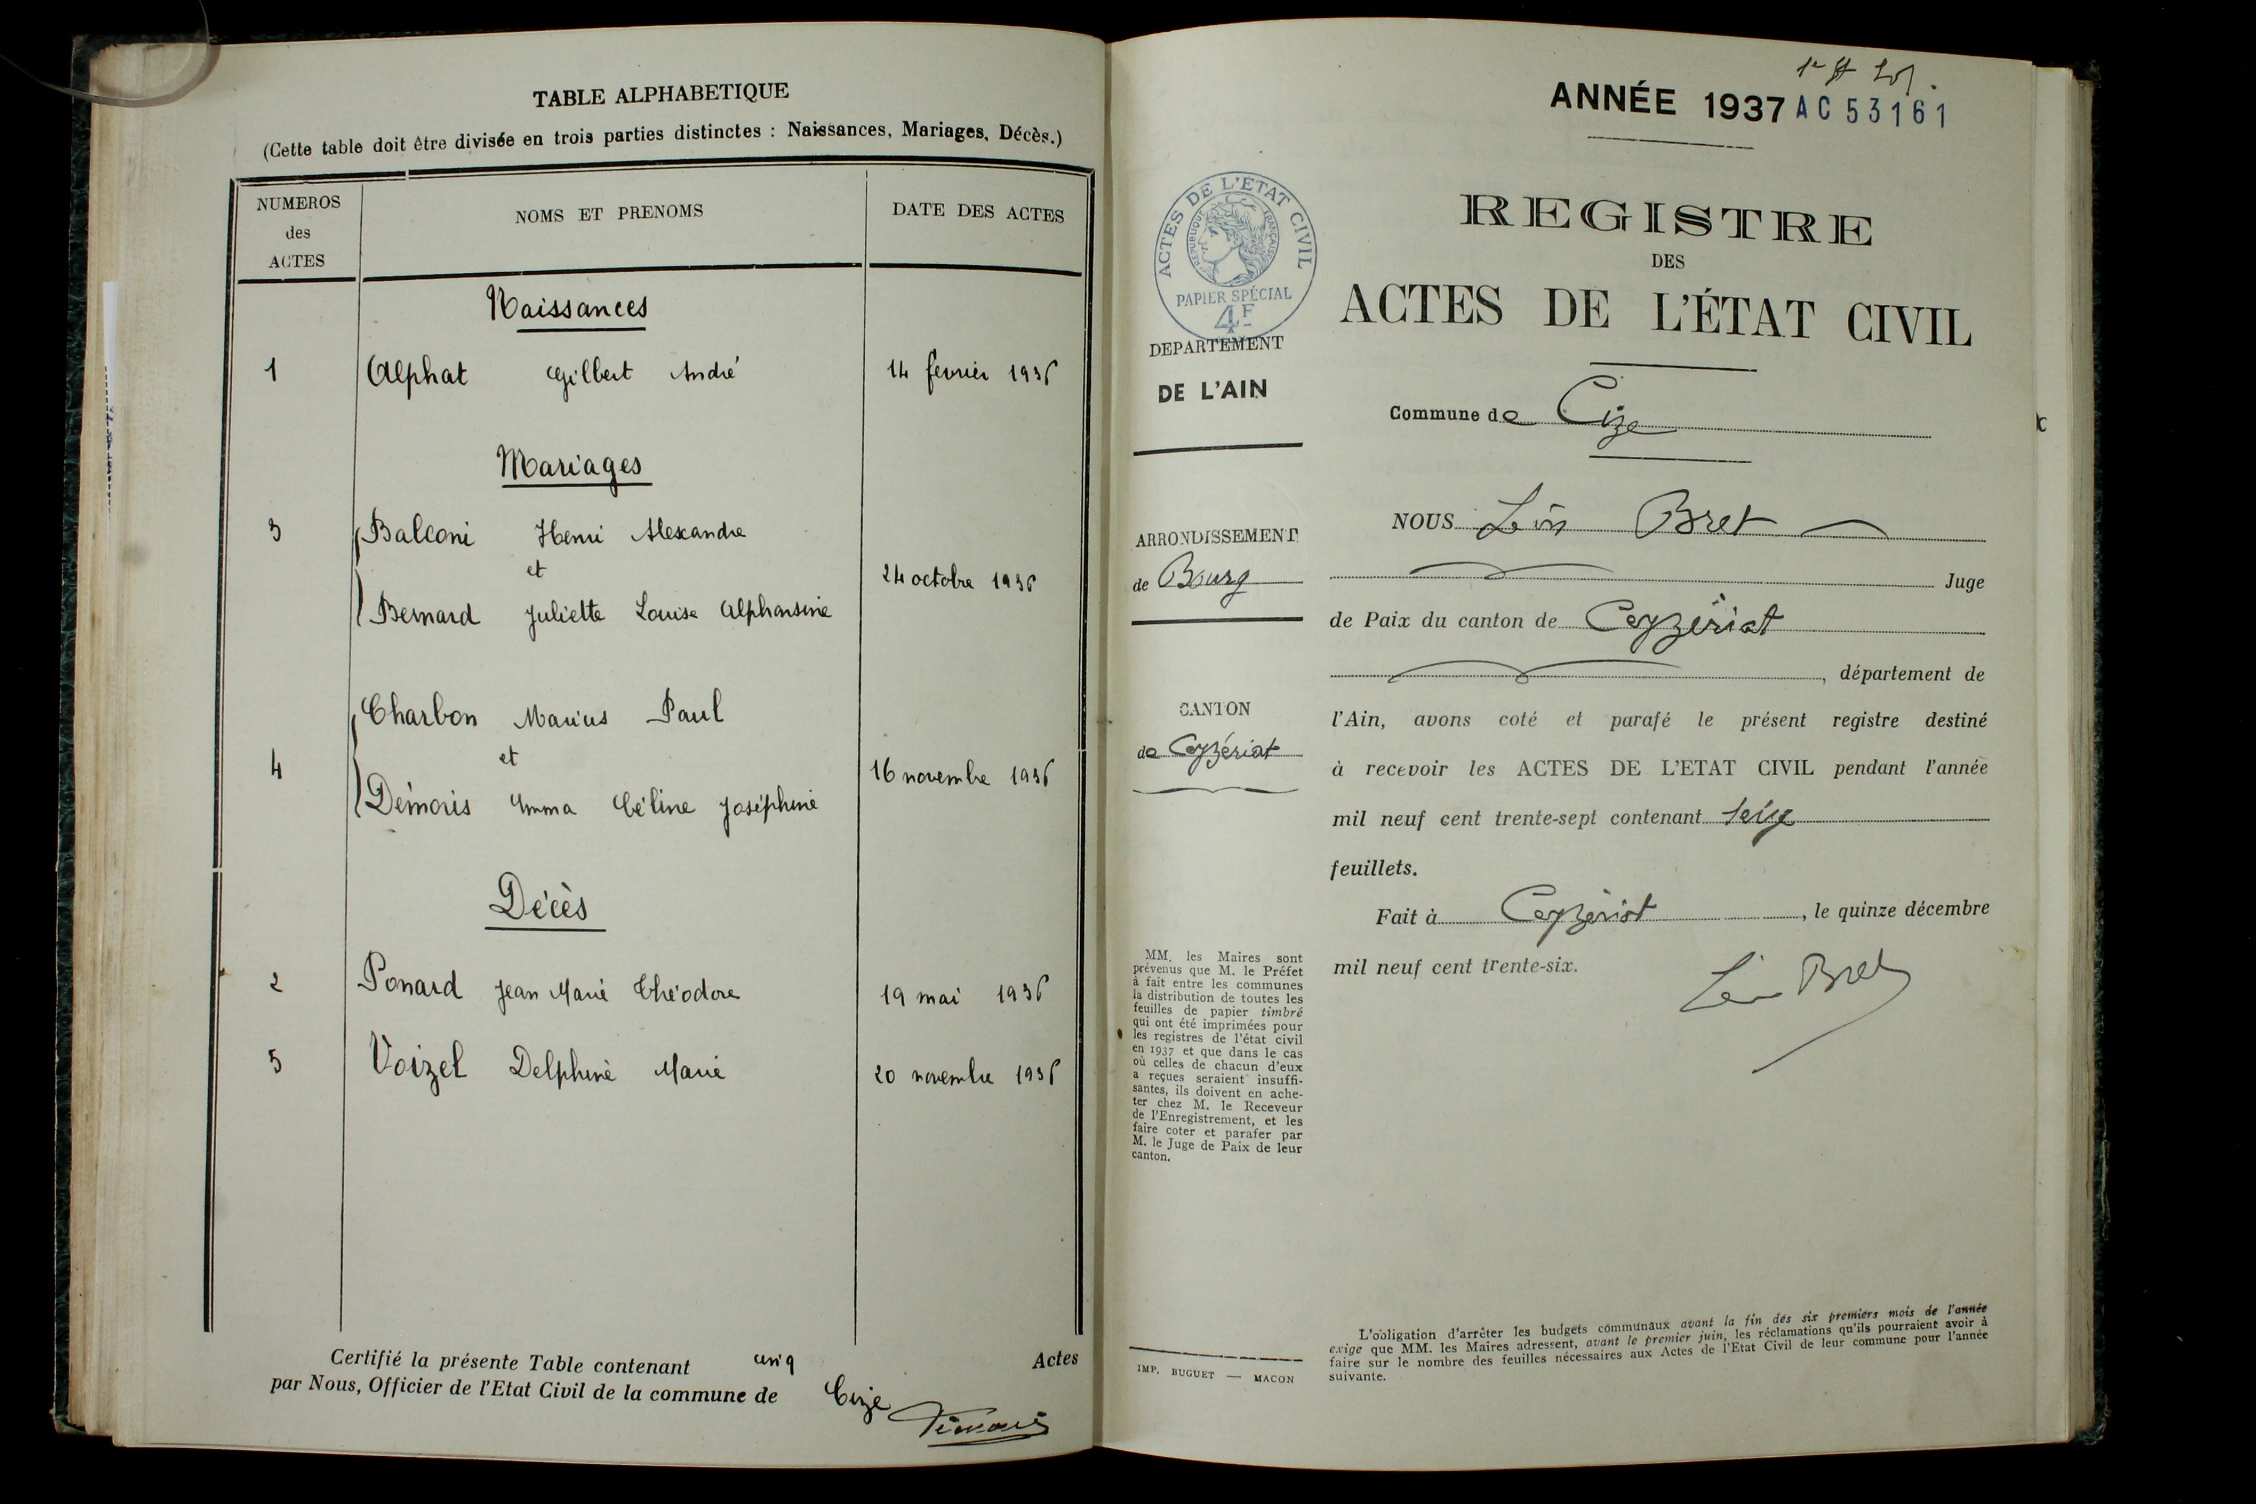 TABLE ALPHABETIQUE
(Cette table doit être divisée en trois parties distinctes : Naissances, Mariages, Décès.)
NUMEROS
des
ACTES
NOMS ET PRENOMS
DATE DES ACTES
Naissances
1 Alphat Gilbert André 14 février 1936
Mariages
3 Balconi Henri Alexandre
et
24 octobre 1936
Bernard Juliette Louise Alphonsine
Charbon Marius Paul
et
4 16 novembre 1936
Démoris Emma Céline Joséphine
Décès
2 Ponard Jean Marie Théodore 19 mai 1936
5 Voizel Delphine Marie 20 novembre 1936
Certifié la présente Table contenant cinq Actes
par Nous, Officier de l'Etat Civil de la commune de Cize
ANNÉE 1937 AC 53161
ACTES DE L'ETAT CIVIL
REPUBLIQUE FRANÇAISE
PAPIER SPÉCIAL
4F
DEPARTEMENT
DE L'AIN
ARRONDISSEMENT
de Bourg
CANTON
de Ceyzériat
MM. les Maires sont
prévenus que M. le Préfet
a fait entre les communes
la distribution de toutes les
feuilles de papier timbré
qui ont été imprimées pour
les registres de l'état civil
en 1937 et que dans le cas
où celles de chacun d'eux
a reçues seraient insuffi-
santes, ils doivent en ache-
ter chez M. le Receveur
de l'Enregistrement, et les
faire coter et parafer par
M. le Juge de Paix de leur
canton.
IMP. BUGUET — MACON
REGISTRE
DES
ACTES DE L'ÉTAT CIVIL
Commune de Cize
NOUS Léon Bret
Juge
de Paix du canton de Ceyzériat
, département de
l'Ain, avons coté et parafé le présent registre destiné
à recevoir les ACTES DE L'ETAT CIVIL pendant l'année
mil neuf cent trente-sept contenant seize
feuillets.
Fait à Ceyzériat, le quinze décembre
mil neuf cent trente-six.
Léon Bret
L'obligation d'arrêter les budgets communaux avant la fin des six premiers mois de l'année
exige que MM. les Maires adressent, avant le premier juin, les réclamations qu'ils pourraient avoir à
faire sur le nombre des feuilles nécessaires aux Actes de l'Etat Civil de leur commune pour l'année
suivante.